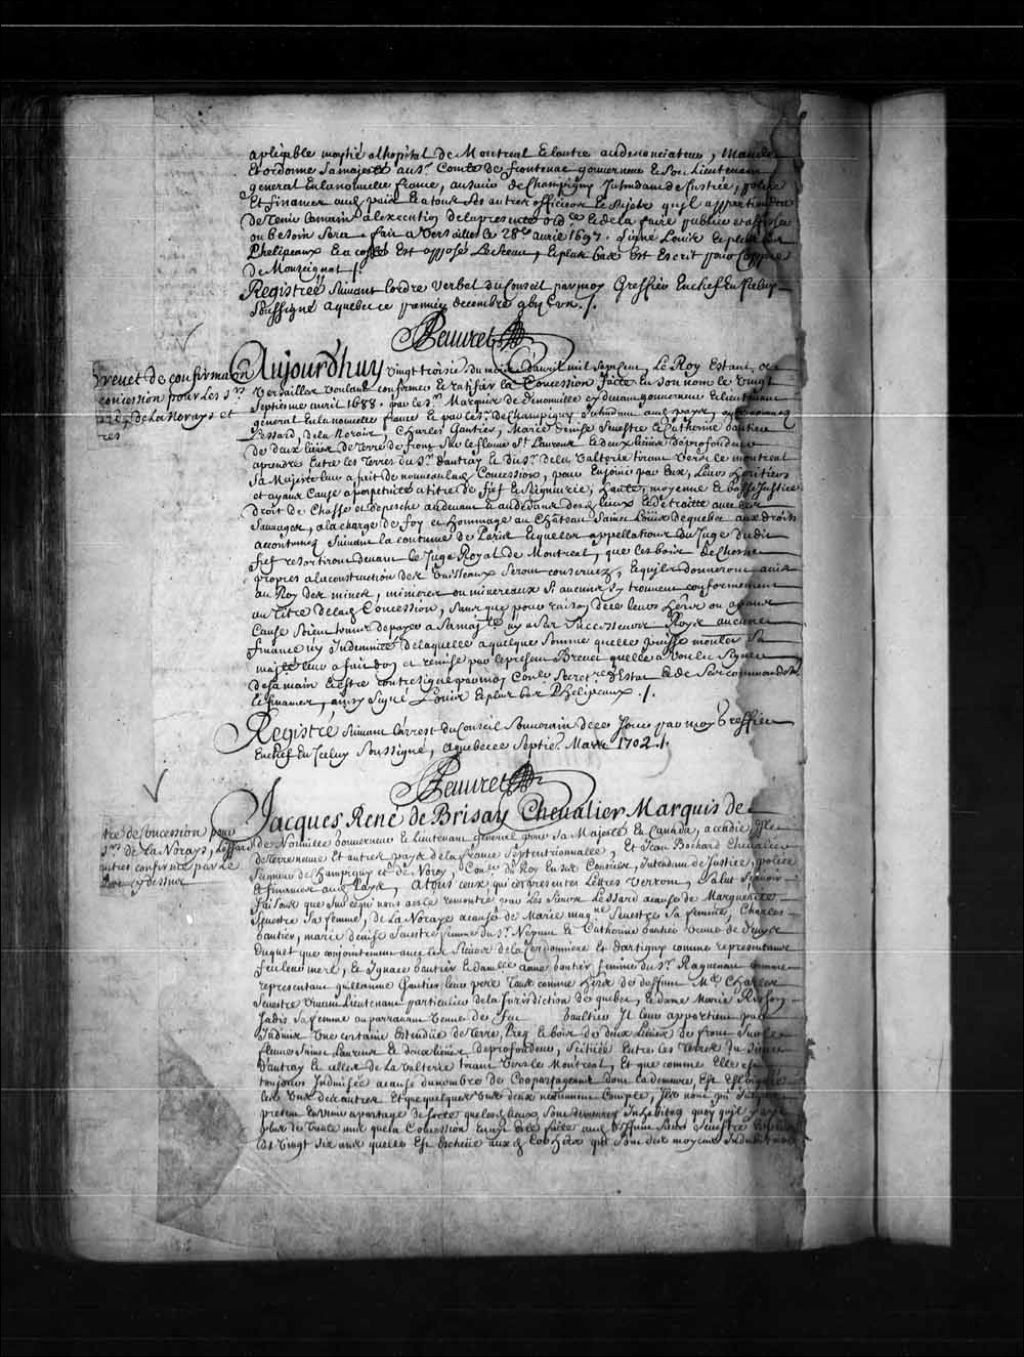 applicable moytié alhopital de Montreal & lautre au denonciateur, Mande
Et ordonne Sa majesté au Sr. Comte de frontenac gouverneur & son Lieutenant
general En la nouvelle france, au sieur de Champigny Intendant de Justice, police
Et finances aud. païs & a tous Ses autres officiers & Sujets quil appartiendra
de tenir la main a lexecution de la presente ordce. & de la faire publier et afficher
ou besoin Sera, fait a Versailles le 28e. avril 1697. Signé Louis & plus bas
Phelipeaux & a costé Est apposé Le Sceau, & plus bas Est Escrit pour Coppie
de Monseignat /.
Registrée Suivant lordre verbal du Conseil par moy Greffier En chef En Iceluy
Soussigné a quebec ce premier decembre
Peuvret
Brevet de confirma
concession pour Les Srs
de la Norays et
res
Aujourdhuy vingt troisie. du mois davril mil Sept cent, Le Roy Estant a
Versailles voulant confirmer & ratifier la Concession faite En Son nom le vingt
Septiesme avril 1688. par le Sr. Marquis de Denonville cy devant gouverneur & lieutenant
general En la nouvelle france & par le Sr. de Champigny Intendant aud. païs, aux nommez
Lessard, de la Noraie, Charles Gautier, Marie denise Senestre & Catherine Gautier
de deux lieües de terre de front Sur le fleuve St. Laurent & deux lieües de profondeur
a prendre Entre les Terres du Sr. dautray & du Sr. de la Valterie tirant vers le montreal
Sa Majesté leur a fait de nouveau lad. Concession, pour En Jouir par Eux, Leurs heritiers
et ayans Cause a perpetuité a titre de fief & Seigneurie, haute, moyenne & basse Justice
droit de Chasse et de pesche au devant & au dedans desd. lieux & de traitte avec les
Sauvages, a la charge de foy et hommage au Château Saint Loüis de quebec aux droits
accoutumez Suivant la coutume de Paris & que les appellations du Juge dudit
fief resortiront devant le Juge Royal de Montreal, que les bois de Chesne
propres a la construction des Vaisseaux Seront conservez, & quils donneront avis
au Roy des mines, minieres ou mineraux Si aucuns Sy trouvent conformement
au titre de lad. Concession, Sans que pour raison de ce leurs hoirs ou ayans
Cause Soient tenus de payer a Sa majté. ny a Ses Successeurs Roys aucune
finance ny Indemnité de laquelle a quelque Somme quelle puisse monter Sa
majté. leur a fait don et remise par le present Brevet quelle a voulu Signer
de Sa main & Estre contresigné par moy Coner. Secretre. dEstat & de Ses commandemts.
& finances, ainsy Signé Louis & plus bas Phelipeaux ./.
Registré Suivant larrest du Conseil Souverain de ce Jour par moy Greffier
En chef En Iceluy Soussigné, a quebec ce Septie. Mars 1702 ./.
Peuvret
tre de Concession pour
Srs. de La Norays, Lessard
autres confirmée par Le
Roy cy dessus
Jacques René de Brisay Chevalier Marquis de
de Nonville Gouverneur & lieutenant general pour Sa Majesté En Canada, accadie, Isle
de terreneuve Et autres pays de la france Septentrionnalle, Et Jean Bochard Chevalier
Seigneur de Champigny et de Noroy, Coner. du Roy En Ses Conseils, Intendant de Justice, police
Et finances aud. Pays, A tous ceux qui ces presentes Lettres verront, Salut Sçavoir
faisons que Sur ce qui nous a esté remontré par Les Sieurs Lessard a cause de Marguerite
Senestre Sa femme, de La Noraye a cause de Marie magne. Senestre Sa femme, Charles
Gautier, marie denise Senestre femme du Sr. Nepveu & Catherine Gautier veuve de denise
Duquet que conjointement avec les Sieurs de la Cardonniere Et dartigny comme representans
& Ignace Gautier & damlle. anne Gautier femme du Sr. Ragueneau comme
representant guillaume Gautier leur pere Tous comme heritrs. de deffunt Mr. Charles
Senestre Vivant Lieutenant particulier de la Jurisdiction de quebec, & dame Marie
Jadis Sa femme auparavant Veuve de feu Gaultier Il leur appartient par
Indivis Une certaine Estendüe de terre, Prez & bois de deux lieües de front Sur le
fleuve Saint Laurent & deux lieües de profondeur, Scituée Entre les terres du Sieur
dautray & celles de la Valterie tirant Vers le Montreal, Et que comme Elle est
toujours Indivisée a cause du nombre de Copartageans dont la demeure Est Esloignée
les Uns des autres Et que quelques Uns deux nentrent En Compte, Ils nont pû Jusqua
present En Venir a partage de sorte que lesd. lieux Sont demeurez Inhabitez quoy quil y ayt
plus de trente ans que la Concession En ayt Esté faite aud. deffunt Sieur Senestre
Et Vingt Six ans quelle Est Escheüe auxd.